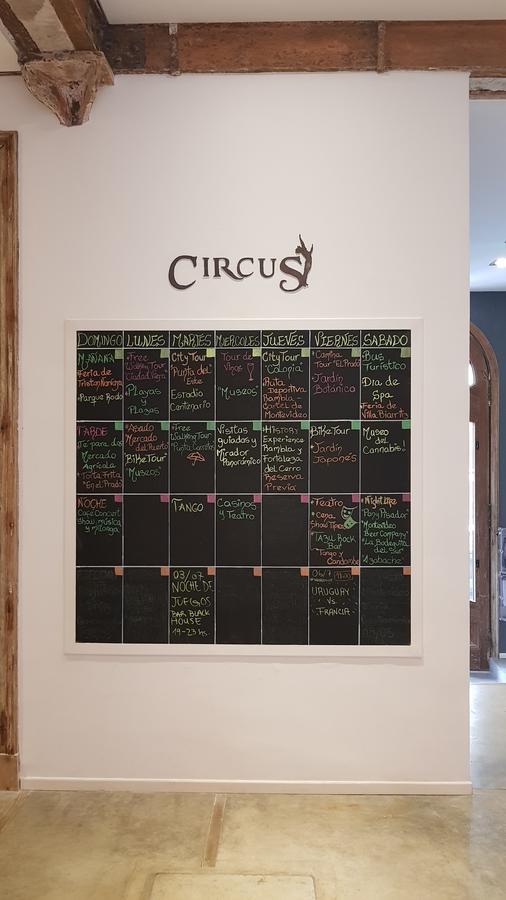 CIRCUS
DOMINGO LUNES MARTES MIERCOLES JUEVES VIERNES SABADO
MAÑANA
Feria de
Tristan Narvaja
Parque Rodo
Free
Walking Tour
Ciudad Vieja
Playas
y
Playas
City Tour
"Punta del
Este
Estadio
Centenario
Tour de
Vinos
"Museos"
City Tour
"Colonia"
Ruta
Deportiva
Rambla -
Cartel de
Montevideo
Camina
Tour "El Prado"
Jardín
Botánico
Bus
Turístico
Dia de
Spa
Feria de
Villa Biarritz
TARDE
Te para dos
Mercado
Agrícola
"Torta Frita
"En el Prado"
Asado
Mercado
del Puerto
BikeTour
"Museos"
Free
Walking Tour
"Punta Carretas"
Visitas
guiadas y
Mirador
Panorámico
HISTORY
Experience
Rambla y
Fortaleza
del Cerro
Reserva
Previa
BikeTour
Jardín
Japonés
Museo
del
Cannabis
NOCHE
Cafe Concert
Show, música
y Milonga
TANGO
Casinos
y Teatro
Teatro
Cena
Show Tipico
Rock
Bar
Tango y
Candombe
Night Life
"Pony Pisador"
"Montevideo
Beer Company"
"La Bodeguita
del Sur"
Azabache"
03/07
NOCHE DE
JUEGOS
BAR BLACK
HOUSE
19-23 hs.
URUGUAY
VS
FRANCIA